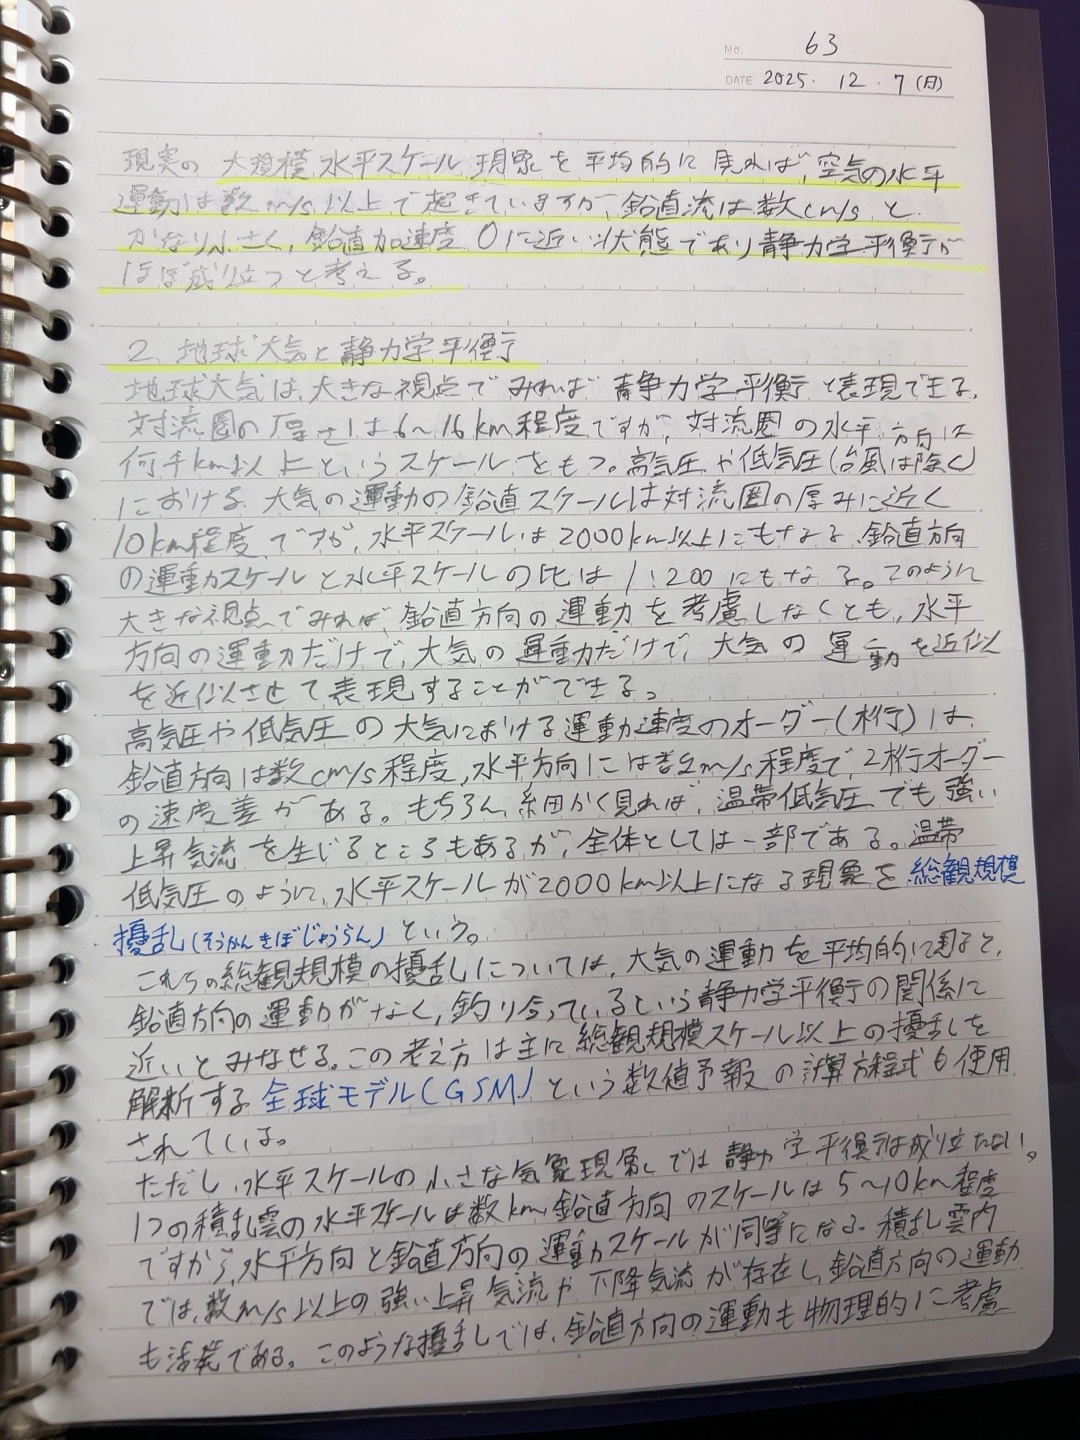 No. 63
DATE 2025. 12. 7 (月)
現実の 大規模 水平スケール 現象を平均的に見れば、空気の水平
運動は数m/s以上で起きていますが、鉛直流は数cm/sと
かなり小さく、鉛直加速度0に近い状態であり静力学平衡が
ほぼ成り立つと考える。
2. 地球大気と静力学平衡
地球大気は、大きな視点でみれば静力学平衡と表現できる。
対流圏の厚さは6〜16km程度ですが、対流圏の水平方向は
何千km以上というスケールをもつ。高気圧や低気圧(台風は除く)
における大気の運動の鉛直スケールは対流圏の厚みに近く
10km程度ですが、水平スケールは2000km以上にもなる。鉛直方向
の運動スケールと水平スケールの比は1:200にもなる。このように
大きな視点でみれば、鉛直方向の運動を考慮しなくとも、水平
方向の運動だけで、大気の運動だけで、大気の運動を近似
を近似させて表現することができる。
高気圧や低気圧の大気における運動速度のオーダー(桁)は、
鉛直方向は数cm/s程度、水平方向には数m/s程度で、2桁オーダー
の速度差がある。もちろん、細かく見れば、温帯低気圧でも強い
上昇気流を生じるところもあるが、全体としては一部である。温帯
低気圧のように、水平スケールが2000km以上になる現象を総観規模
擾乱(そうかんきぼじょうらん)という。
これらの総観規模の擾乱については、大気の運動を平均的に見ると、
鉛直方向の運動がなく、釣り合っているという静力学平衡の関係に
近いとみなせる。この考え方は主に総観規模スケール以上の擾乱を
解析する全球モデル(GSM)という数値予報の計算方程式も使用
されている。
ただし、水平スケールの小さな気象現象では静力学平衡は成り立たない。
1つの積乱雲の水平スケールは数km、鉛直方向のスケールは5〜10km程度
ですから、水平方向と鉛直方向の運動スケールが同等になる。積乱雲内
では、数m/s以上の強い上昇気流や下降気流が存在し、鉛直方向の運動
も活発である。このような擾乱では、鉛直方向の運動も物理的に考慮